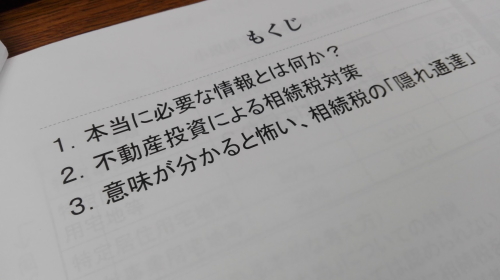 もくじ
1. 本当に必要な情報とは何か？
2. 不動産投資による相続税対策
3. 意味が分かると怖い、相続税の「隠れ通達」